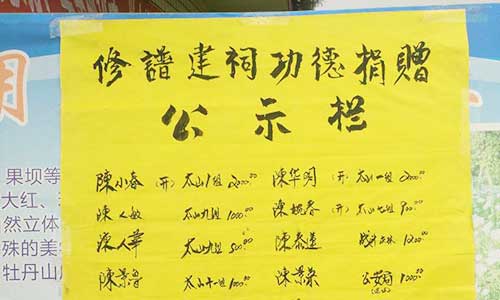 修譜建祠功德捐贈
公示栏
陳小春 (开) 太山1组 2000.00
陳华明 (开) 太山一组 2000.00
陳人敏 太山九组 1000.00
陳 春 (开) 太山七组 900.00
陳人華 太山九组 500.00
陳泰送 1200
陳景魯 太山十一组 1000.00
陳景荣 1000.00
用
果坝等
大红、
然立体
殊的美
牡丹山